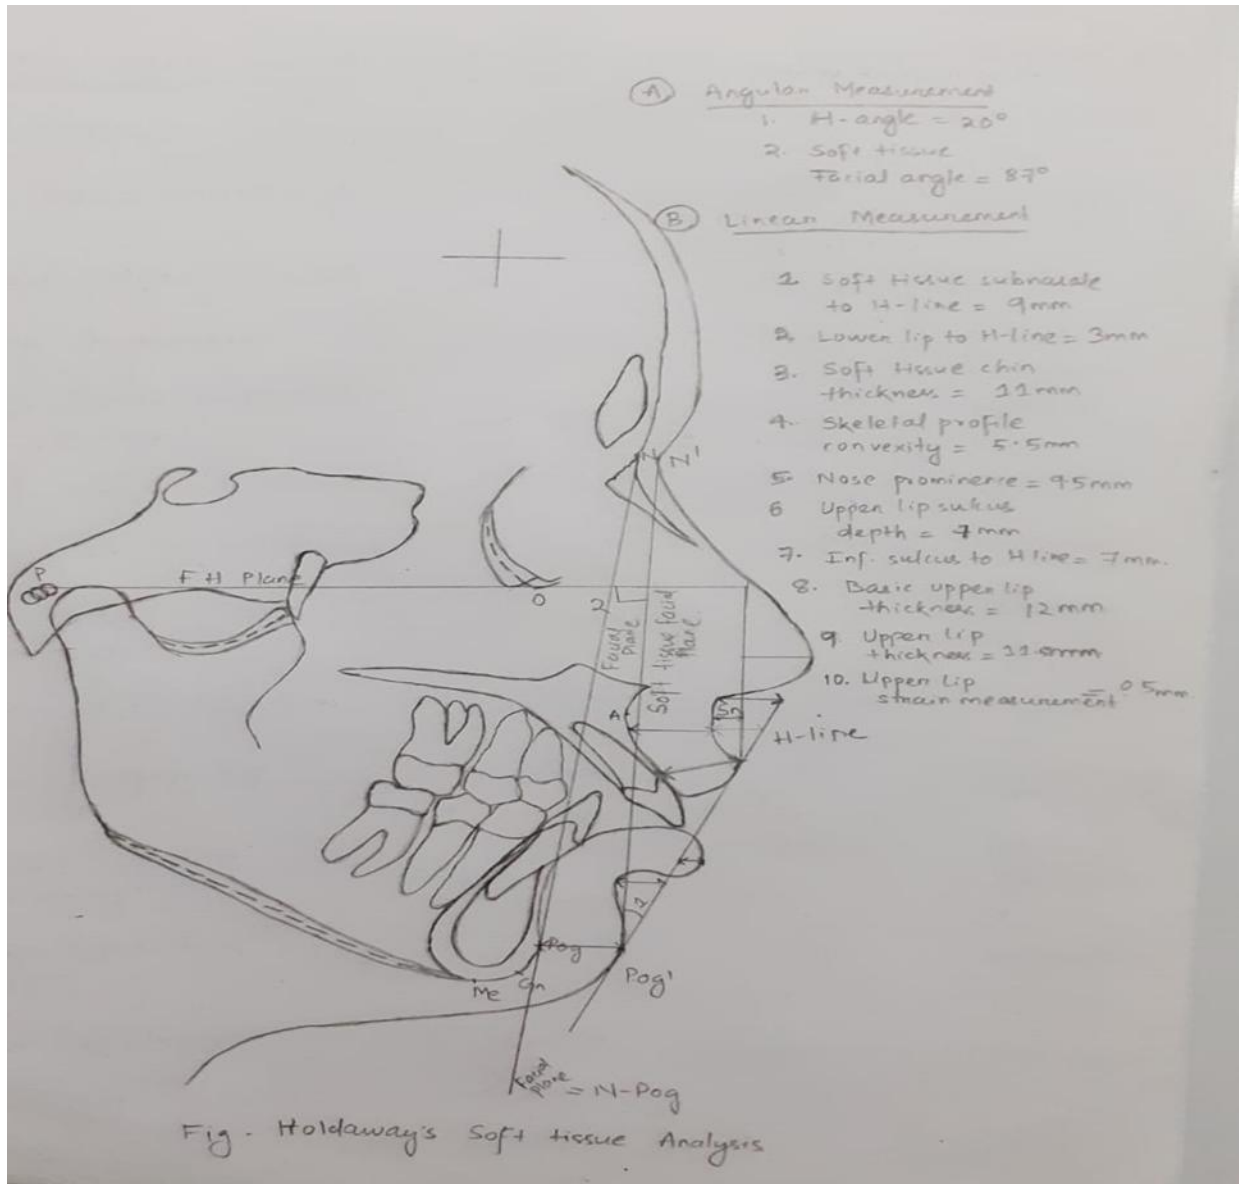 A Angular Measurement
1. H-angle = 20°
2. Soft tissue
Facial angle = 87°
B Linear Measurement
1 Soft tissue subnasale
to H-line = 9mm
2. Lower lip to H-line = 3mm
3. Soft tissue chin
thickness = 11mm
4. Skeletal profile
convexity = 5.5mm
5. Nose prominence = 95mm
6 Upper lip sulcus
depth = 7mm
7. Inf. sulcus to H line = 7mm.
8. Basic upper lip
thickness = 12mm
9. Upper lip
thickness =
10. Upper Lip
strain measurement = 0.5mm
N N'
P
FH Plane
O
2
Facial
Plane
Soft tissue facial
Plane.
A
Sn
H-line
1
Pog
Pog'
Me
Gn
Facial
Plane = N-Pog
Fig. Holdaway's Soft tissue Analysis